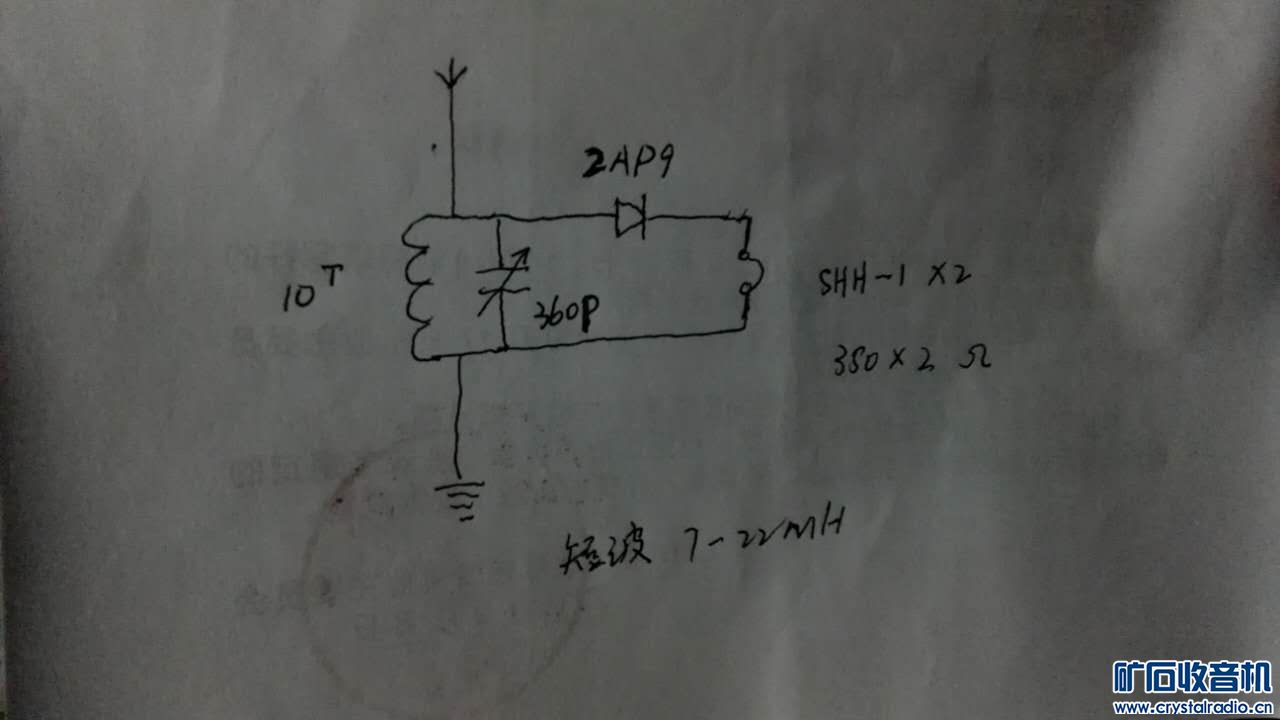 2AP9
10T
360P
SHH-1 X2
350X2 Ω
短波 7-22mH
矿石收音机
www.crystalradio.cn